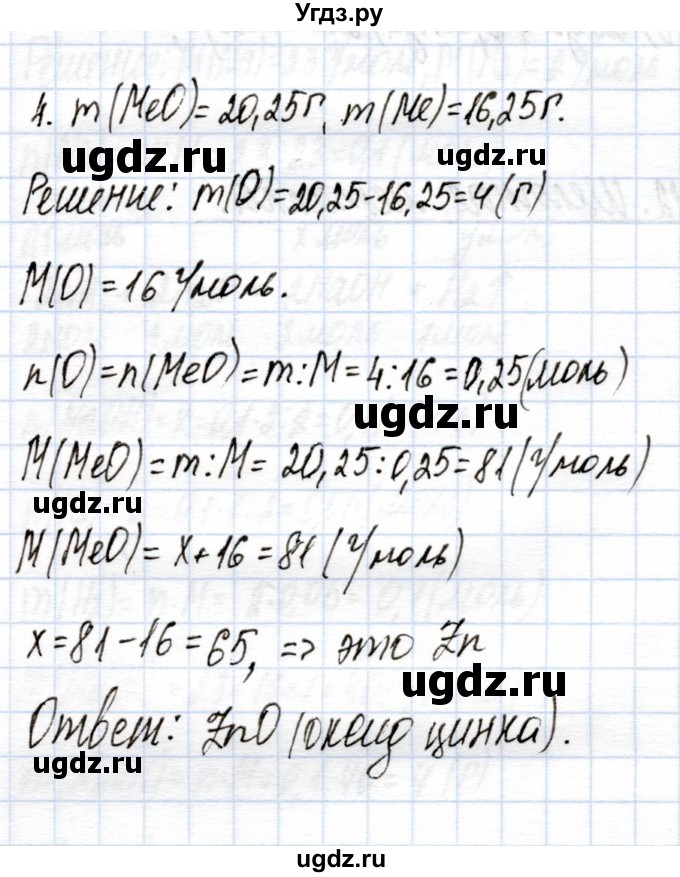 Угдз.ру
4. m(MeO)=20,25г, m(Me)=16,25г.
ugdz.ru
Решение: m(O)=20,25-16,25=4(г)
M(O)=16 г/моль.
n(O)=n(MeO)=m:M=4:16=0,25(моль)
ugdz.ru
M(MeO)=m:M=20,25:0,25=81(г/моль)
ugdz.ru
M(MeO)=x+16=81(г/моль)
x=81-16=65, => это Zn
ugdz.ru
Ответ: ZnO (оксид цинка).
ugdz.ru
ugdz.ru